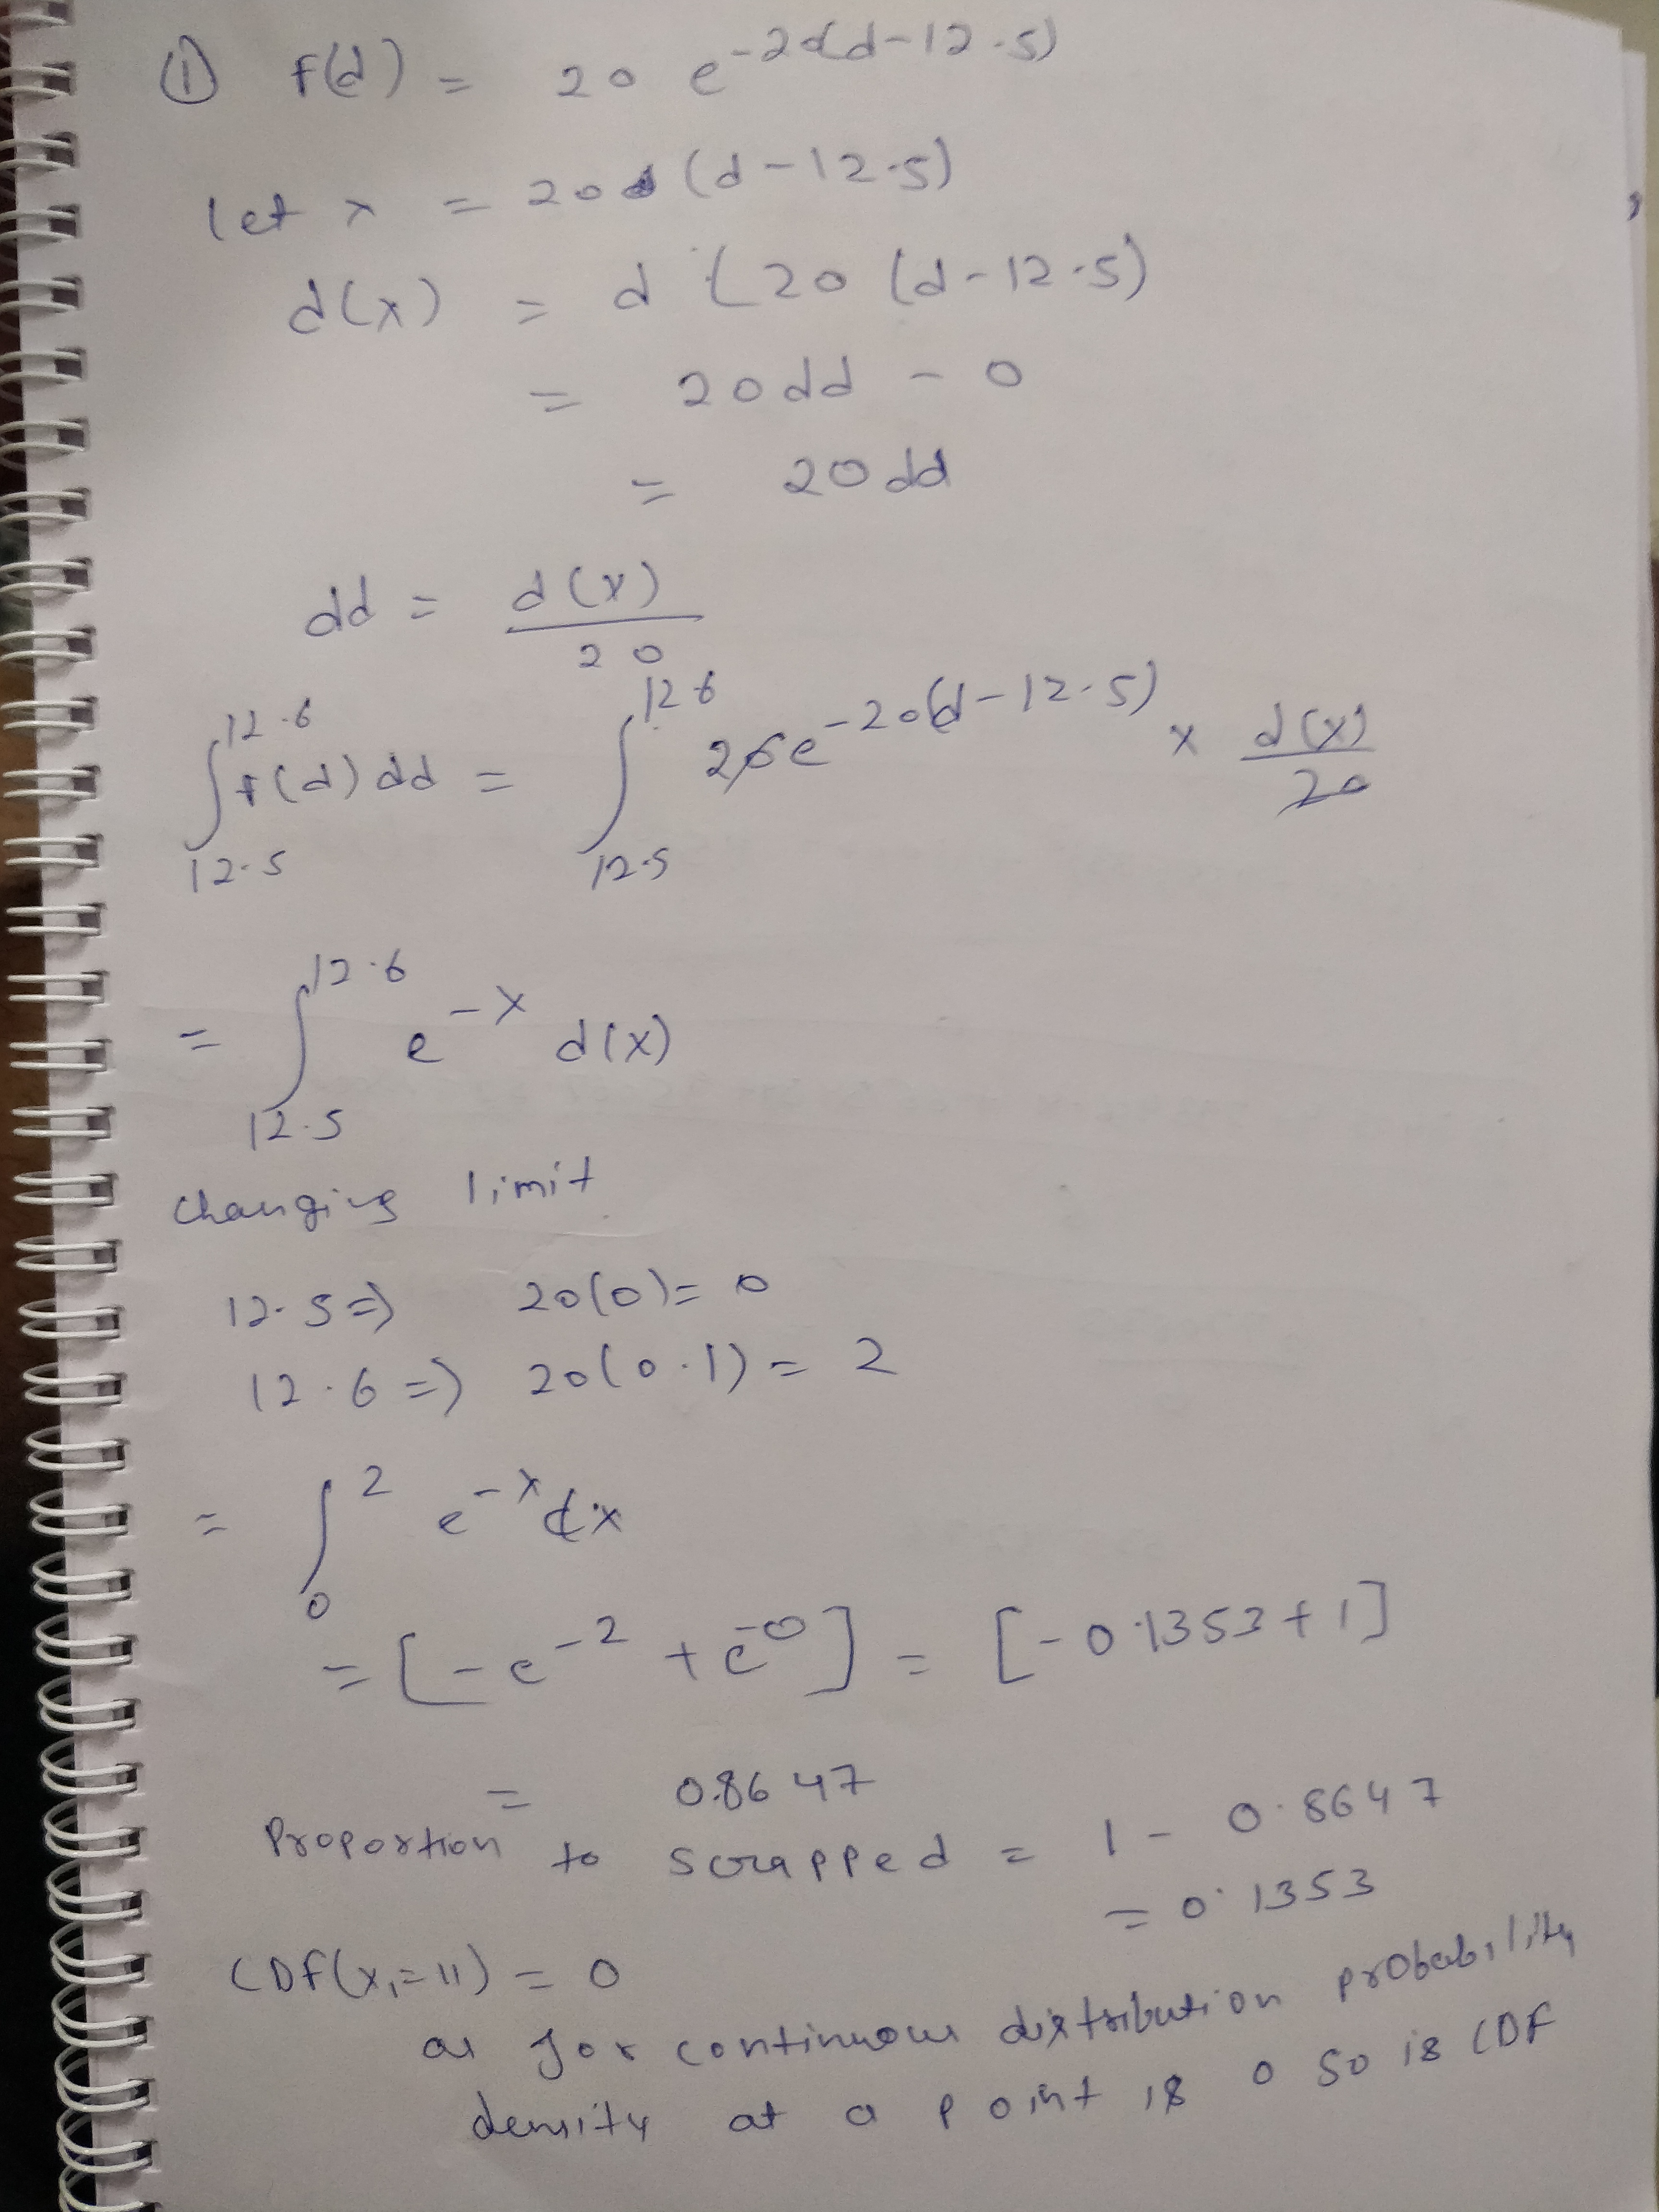 ① f(d) = 20 e^{-20(d-12.5)}
let x = 20 (d-12.5)
d(x) = d (20 (d-12.5)
= 20dd - 0
= 20dd
dd = d(x)/20
∫_{12.5}^{12.6} f(d) dd = ∫_{12.5}^{12.6} 20e^{-20(d-12.5)} × d(x)/20
= ∫_{12.5}^{12.6} e^{-x} d(x)
changing limit
12.5 ⇒ 20(0) = 0
12.6 ⇒ 20(0.1) = 2
= ∫_0^2 e^{-x} dx
= [-e^{-2} + e^{-0}] = [-0.1353+1]
= 0.8647
Proportion to scrapped = 1 - 0.8647
= 0.1353
CDF(x,=11) = 0
as for continuous distribution probability
density at a point is 0 so is CDF